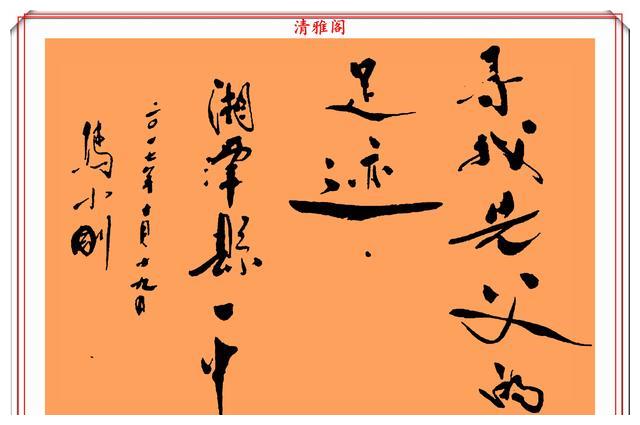 清雅阁
寻找先父的
足迹.
湘潭縣一中
二〇一七年十月十九日
馮小刚